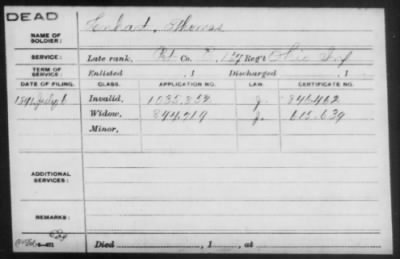 DEAD
NAME OF SOLDIER: Enhart, Thomas
SERVICE: Late rank, Pvt Co. 127 Reg't Ohio Inf
TERM OF SERVICE: Enlisted , 1 Discharged , 1
DATE OF FILING. CLASS. APPLICATION NO. LAW. CERTIFICATE NO.
1891 July Invalid, 1035.352 845.462
Widow, 844.219 615.639
Minor,
ADDITIONAL SERVICES:
REMARKS:
Died , 1 , at